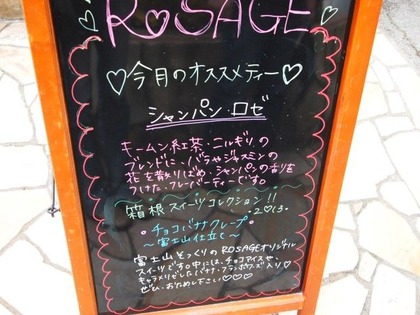 ROSAGE
♡今月のオススメティー♡
シャンパン ロゼ
キームン紅茶・ニルギリの
ブレンドに、バラやジャスミンの
花を散りばめ、シャンパンの香りを
つけた、フレーバーティーです。
箱根スイーツコレクション!!
2013.
・チョコバナナクレープ・
〜富士山仕立て〜
富士山そっくりのROSAGEオリジナル
スイーツです♡中には、チョコアイスや、
キャラメリゼしたバナナ・フランボワーズ入り♡
ぜひ、おためし下さい♡♡♡